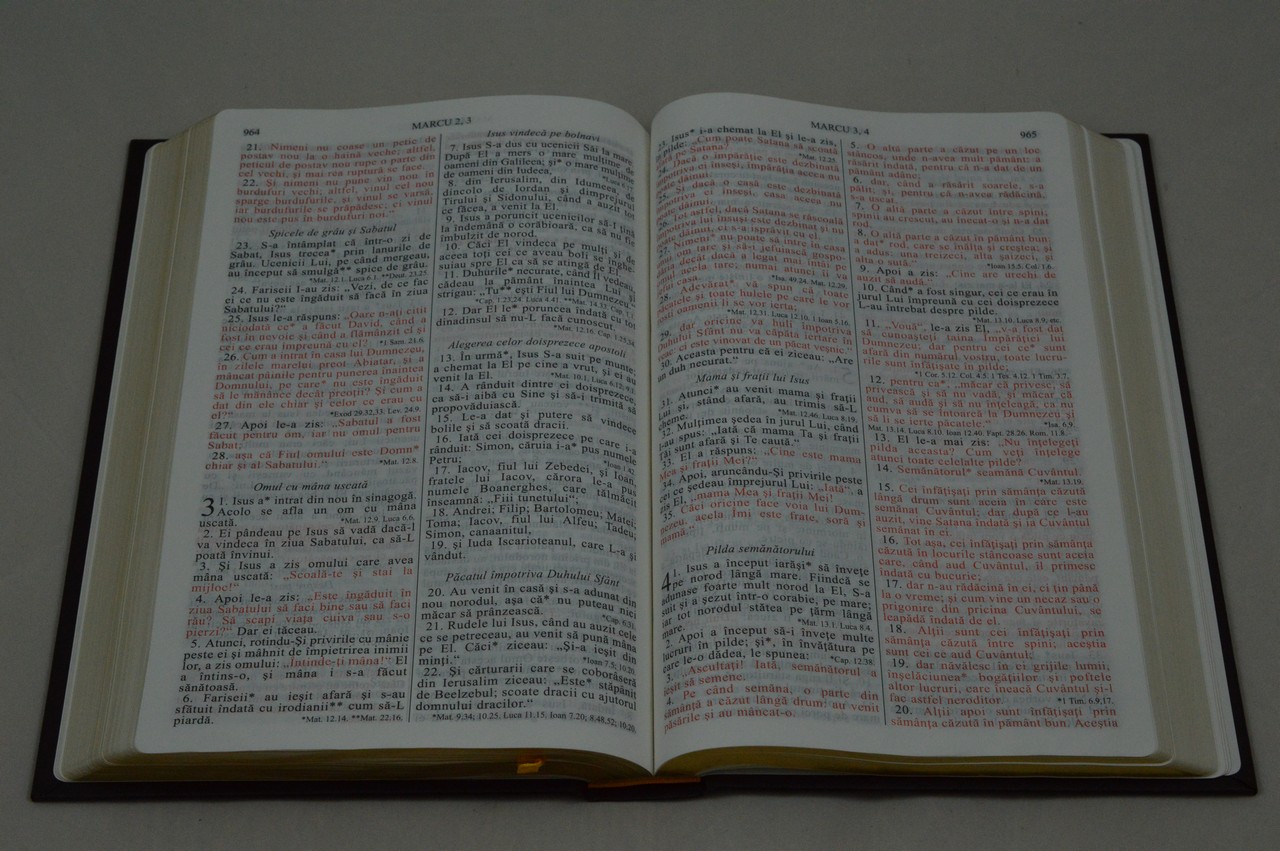 964
MARCU 2, 3
21. Nimeni nu coase un petic de
postav nou la o haină veche; altfel,
peticul de postav nou rupe o parte din
cel vechi, şi mai rea ruptură se face.
22. Şi nimeni nu pune vin nou în
burdufuri vechi; altfel, vinul cel nou
sparge burdufurile, şi vinul se varsă,
iar burdufurile se prăpădesc; ci vinul
nou este pus în burdufuri noi.”
Spicele de grâu şi Sabatul
23. S-a întâmplat că într-o zi de
Sabat, Isus trecea* prin lanurile de
grâu. Ucenicii Lui, pe când mergeau,
au început să smulgă** spice de grâu.
*Mat. 12.1. Luca 6.1. **Deut. 23.25.
24. Fariseii I-au zis: „Vezi, de ce fac
ei ce nu este îngăduit să facă în ziua
Sabatului?”
25. Isus le-a răspuns: „Oare n-aţi citit
niciodată ce* a făcut David, când a
fost în nevoie şi când a flămânzit el şi
cei ce erau împreună cu el?
*1 Sam. 21.6.
26. Cum a intrat în casa lui Dumnezeu,
în zilele marelui preot Abiatar, şi a
mâncat pâinile pentru punerea înaintea
Domnului, pe care* nu este îngăduit
să le mănânce decât preoţii? Şi cum a
dat din ele chiar şi celor ce erau cu
el?”
*Exod 29.32,33. Lev. 24.9.
27. Apoi le-a zis: „Sabatul a fost
făcut pentru om, iar nu omul pentru
Sabat;
28. aşa că Fiul omului este Domn*
chiar şi al Sabatului.”
*Mat. 12.8.
Omul cu mâna uscată
3 1. Isus a* intrat din nou în sinagogă.
Acolo se afla un om cu mâna
uscată.
*Mat. 12.9. Luca 6.6.
2. Ei pândeau pe Isus să vadă dacă-l
va vindeca în ziua Sabatului, ca să-L
poată învinui.
3. Şi Isus a zis omului care avea
mâna uscată: „Scoală-te şi stai la
mijloc!”
4. Apoi le-a zis: „Este îngăduit în
ziua Sabatului să faci bine sau să faci
rău? Să scapi viaţa cuiva sau s-o
pierzi?” Dar ei tăceau.
5. Atunci, rotindu-Şi privirile cu mânie
peste ei şi mâhnit de împietrirea inimii
lor, a zis omului: „Întinde-ţi mâna!” El
a întins-o, şi mâna i s-a făcut
sănătoasă.
6. Fariseii* au ieşit afară şi s-au
sfătuit îndată cu irodianii** cum să-L
piardă.
*Mat. 12.14. **Mat. 22.16.
Isus vindecă pe bolnavi
7. Isus S-a dus cu ucenicii Săi la mare.
După El a mers o mare mulţime de
oameni din Galileea; şi* o mare mulţime
de oameni din Iudeea,
8. din Ierusalim, din Idumeea, de
dincolo de Iordan şi dimprejurul
Tirului şi Sidonului, când a auzit tot
ce făcea, a venit la El.
9. Isus a poruncit ucenicilor să-I ţină
la îndemână o corăbioară, ca să nu fie
îmbulzit de norod.
10. Căci El vindeca pe mulţi şi de
aceea toţi cei ce aveau boli se înghe-
suiau spre El ca să se atingă de El.
11. Duhurile* necurate, când Îl vedeau,
cădeau la pământ înaintea Lui şi
strigau: „Tu** eşti Fiul lui Dumnezeu.”
12. Dar El le* poruncea îndată cu tot
dinadinsul să nu-L facă cunoscut.
*Mat. 12.16. Cap. 1.25,34.
Alegerea celor doisprezece apostoli
13. În urmă*, Isus S-a suit pe munte;
a chemat la El pe cine a vrut, şi ei au
venit la El.
14. A rânduit dintre ei doisprezece,
ca să-i aibă cu Sine şi să-i trimită să
propovăduiască.
15. Le-a dat şi putere să vindece
bolile şi să scoată dracii.
16. Iată cei doisprezece pe care i-a
rânduit: Simon, căruia i-a* pus numele
Petru;
*Ioan 1.42.
17. Iacov, fiul lui Zebedei, şi Ioan,
fratele lui Iacov, cărora le-a pus
numele Boanerghes, care tălmăcit
înseamnă: „Fiii tunetului”;
18. Andrei; Filip; Bartolomeu; Matei;
Toma; Iacov, fiul lui Alfeu; Tadeu;
Simon, canaanitul,
19. şi Iuda Iscarioteanul, care L-a şi
vândut.
Păcatul împotriva Duhului Sfânt
20. Au venit în casă şi s-a adunat din
nou norodul, aşa că* nu puteau nici
măcar să prânzească.
*Cap. 6.31.
21. Rudele lui Isus, când au auzit cele
ce se petreceau, au venit să pună mâna
pe El. Căci* ziceau: „Şi-a ieşit din
minţi.”
*Ioan 7.5; 10.20.
22. Şi cărturarii care se coborâseră
din Ierusalim ziceau: „Este* stăpânit
de Beelzebul; scoate dracii cu ajutorul
domnului dracilor.”
*Mat. 9.34; 10.25. Luca 11.15. Ioan 7.20; 8.48,52; 10.20.
MARCU 3, 4
965
23. Isus* i-a chemat la El şi le-a zis,
în pilde: „Cum poate Satana să scoată
afară pe Satana?
*Mat. 12.25.
24. Dacă o împărăţie este dezbinată
împotriva ei însăşi, împărăţia aceea nu
poate dăinui.
25. Şi dacă o casă este dezbinată
împotriva ei înseşi, casa aceea nu
poate dăinui.
26. Tot astfel, dacă Satana se răscoală
împotriva lui însuşi este dezbinat şi nu
poate dăinui, ci s-a isprăvit cu el.
27. Nimeni* nu poate să intre în casa
unui om tare şi să-i jefuiască gospo-
dăria decât dacă a legat mai întâi pe
omul acela tare; numai atunci îi va
jefui casa.
*Isa. 49.24. Mat. 12.29.
28. Adevărat* vă spun că toate
păcatele şi toate hulele pe care le vor
rosti oamenii li se vor ierta;
*Mat. 12.31. Luca 12.10. 1 Ioan 5.16.
29. dar oricine va huli împotriva
Duhului Sfânt nu va căpăta iertare în
veac, ci este vinovat de un păcat veşnic.”
30. Aceasta pentru că ei ziceau: „Are
un duh necurat.”
Mama şi fraţii lui Isus
31. Atunci* au venit mama şi fraţii
Lui şi, stând afară, au trimis să-L
cheme.
*Mat. 12.46. Luca 8.19.
32. Mulţimea şedea în jurul Lui, când
I-au spus: „Iată că mama Ta şi fraţii
Tăi sunt afară şi Te caută.”
33. El a răspuns: „Cine este mama
Mea şi fraţii Mei?”
34. Apoi, aruncându-Şi privirile peste
cei ce şedeau împrejurul Lui: „Iată”, a
zis El, „mama Mea şi fraţii Mei!
35. Căci oricine face voia lui Dum-
nezeu, acela Îmi este frate, soră şi
mamă.”
Pilda semănătorului
4 1. Isus a început iarăşi* să înveţe
pe norod lângă mare. Fiindcă se
adunase foarte mult norod la El, S-a
suit şi a şezut într-o corabie, pe mare;
iar tot norodul stătea pe ţărm lângă
mare.
*Mat. 13.1. Luca 8.4.
2. Apoi a început să-i înveţe multe
lucruri în pilde; şi*, în învăţătura pe
care le-o dădea, le spunea:
*Cap. 12.38.
3. „Ascultaţi! Iată, semănătorul a
ieşit să semene.
4. Pe când semăna, o parte din
sămânţă a căzut lângă drum: au venit
păsările şi au mâncat-o.
5. O altă parte a căzut pe un loc
stâncos, unde n-avea mult pământ: a
răsărit îndată, pentru că n-a dat de un
pământ adânc;
6. dar, când a răsărit soarele, s-a
pălit; şi, pentru că n-avea rădăcină,
s-a uscat.
7. O altă parte a căzut între spini;
spinii au crescut, au înecat-o şi n-a dat
rod.
8. O altă parte a căzut în pământ bun:
a dat* rod, care se înălţa şi creştea; şi
a adus: una treizeci, alta şaizeci, şi
alta o sută.”
*Ioan 15.5. Col. 1.6.
9. Apoi a zis: „Cine are urechi de
auzit să audă.”
10. Când* a fost singur, cei ce erau în
jurul Lui împreună cu cei doisprezece
L-au întrebat despre pilde.
*Mat. 13.10. Luca 8.9, etc.
11. „Vouă”, le-a zis El, „v-a fost dat
să cunoaşteţi taina Împărăţiei lui
Dumnezeu; dar pentru cei ce* sunt
afară din numărul vostru, toate lucru-
rile sunt înfăţişate în pilde;
*1 Cor. 5.12. Col. 4.5. 1 Tes. 4.12. 1 Tim. 3.7.
12. pentru ca*, „măcar că privesc, să
privească şi să nu vadă, şi măcar că
aud, să audă şi să nu înţeleagă, ca nu
cumva să se întoarcă la Dumnezeu şi
să li se ierte păcatele.”
*Isa. 6.9.
Mat. 13.14. Luca 8.10. Ioan 12.40. Fapt. 28.26. Rom. 11.8.
13. El le-a mai zis: „Nu înţelegeţi
pilda aceasta? Cum veţi înţelege
atunci toate celelalte pilde?
14. Semănătorul* seamănă Cuvântul.
*Mat. 13.19.
15. Cei înfăţişaţi prin sămânţa căzută
lângă drum sunt aceia în care este
semănat Cuvântul; dar după ce l-au
auzit, vine Satana îndată şi ia Cuvântul
semănat în ei.
16. Tot aşa, cei înfăţişaţi prin sămânţa
căzută în locurile stâncoase sunt aceia
care, când aud Cuvântul, îl primesc
îndată cu bucurie;
17. dar n-au rădăcină în ei, ci ţin până
la o vreme; şi cum vine un necaz sau o
prigonire din pricina Cuvântului, se
leapădă îndată de el.
18. Alţii sunt cei înfăţişaţi prin
sămânţa căzută între spini; aceştia
sunt cei ce aud Cuvântul;
19. dar năvălesc în ei grijile lumii,
înşelăciunea* bogăţiilor şi poftele
altor lucruri, care îneacă Cuvântul şi-l
fac astfel neroditor.
*1 Tim. 6.9,17.
20. Alţii apoi sunt înfăţişaţi prin
sămânţa căzută în pământ bun. Aceştia